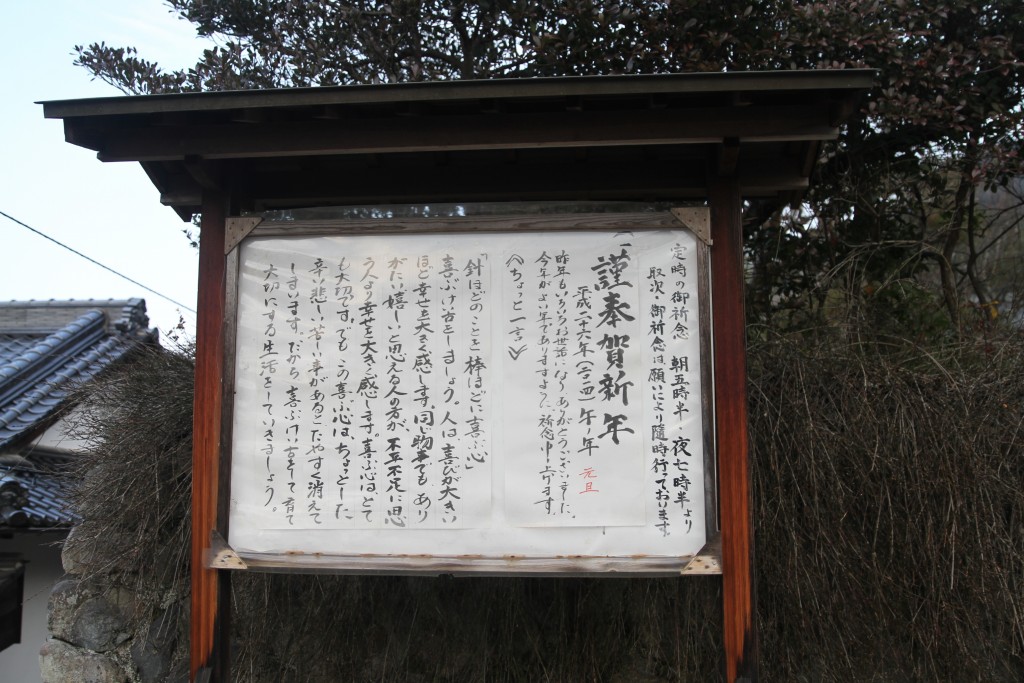 定時の御祈念 朝五時半・夜七時半より
取次・御祈念は願いにより随時行っております。
謹奉賀新年
平成二十六年(二〇一四)午年 元旦
昨年もいろいろお世話になりありがとうございました。
今年がよい年でありますように、祈念申し上げます。
《ちょっと一言》
「針ほどのことを棒ほどに喜ぶ心」
喜ぶけい古をしましょう。人は、喜びが大きい
ほど幸せを大きく感じます。同じ物事でも あり
がたい嬉しいと思える人の方が、不平不足に思
う人より幸せを大きく感じます。喜ぶ心はとて
も大切です。でも この喜ぶ心は、ちょっとした
辛い悲しい苦しい事があるとたやすく消えて
しまいます。だから、喜ぶけい古をして育て
大切にする生活をしていきましょう。